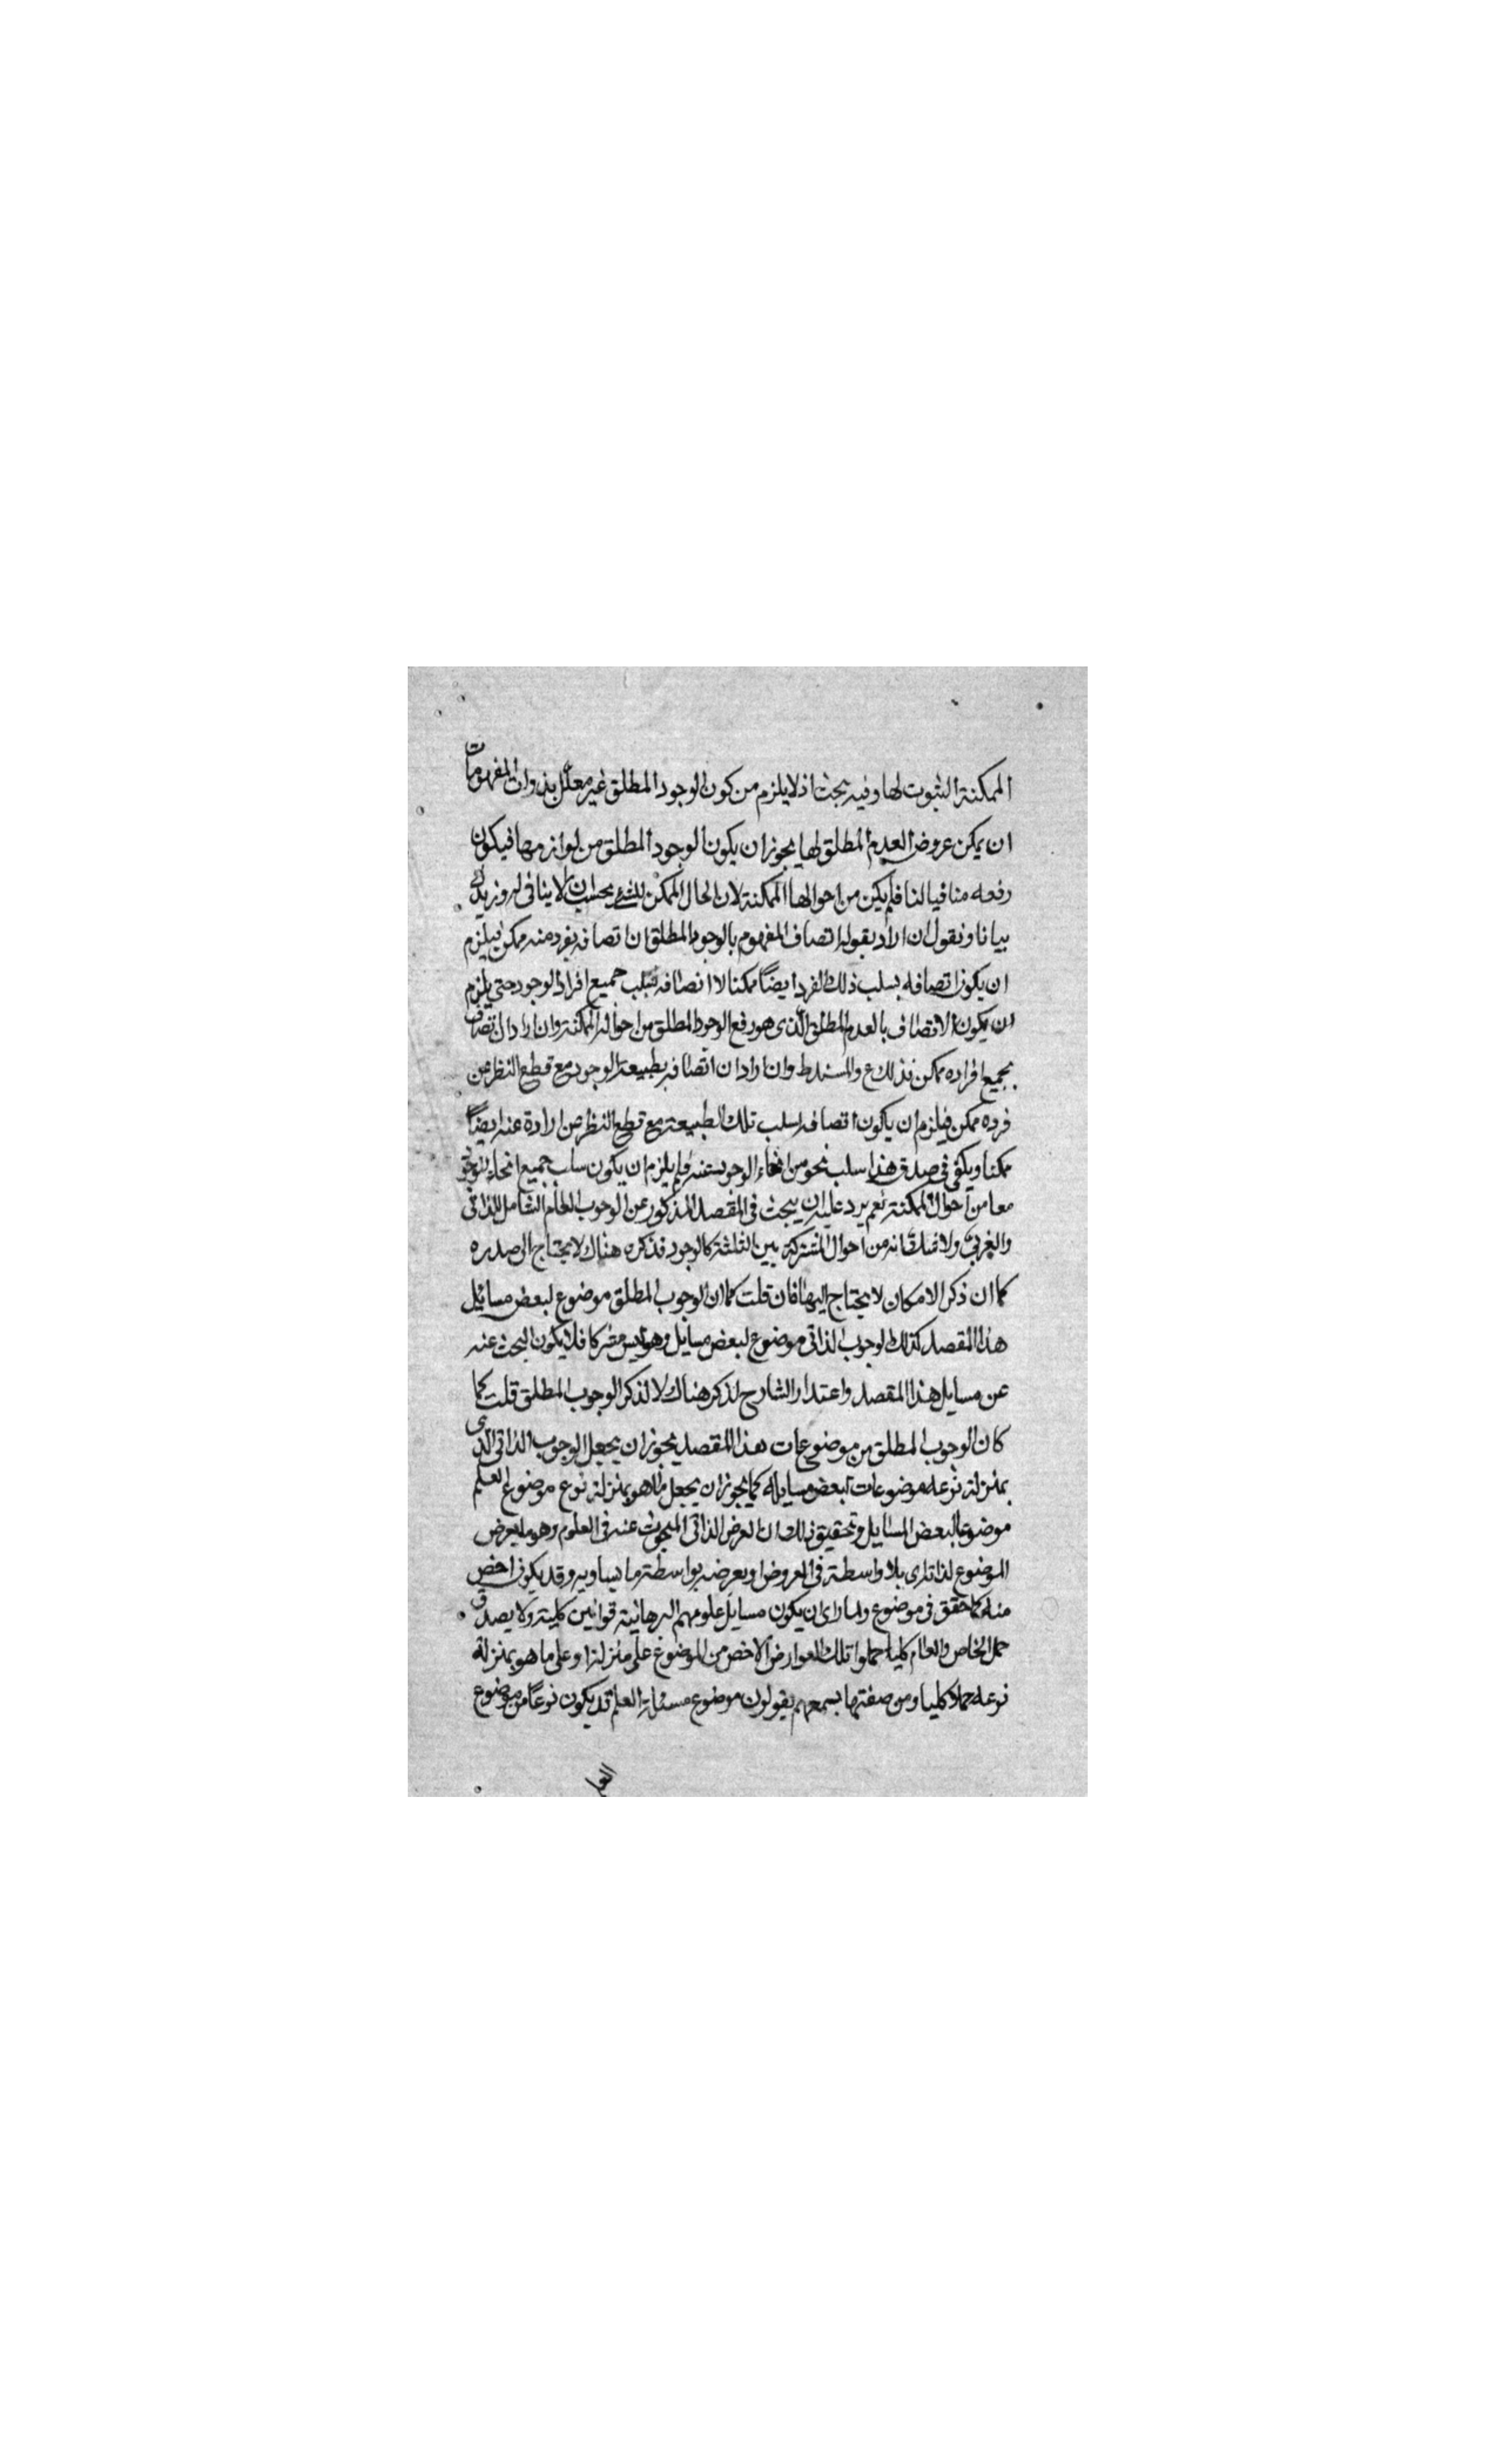 الممكنة الثبوت لها وفيه بحث اذ لا يلزم من كون الوجود المطلق غير معلل بذوات المفهومات
ان يمكن عروض العدم المطلق لها يجوز ان يكون الوجود المطلق من لوازمها فيكون
رفعه منافيا لنا فلم يكن من احوالها الممكنة لان الحال الممكن للشئ بحسب لا ينافى له ونزيدك
بيانا ونقول ان اراد بقوله اتصاف المفهوم بالوجود المطلق ان اتصافه بفرد منه ممكن فيلزم
ان يكون اتصافه بسلب ذلك الفرد ايضاً ممكنا لا اتصافه بسلب جميع افراد الوجود حتى يلزم
ان يكون الاتصاف بالعدم المطلق الذى هو رفع الوجود المطلق من احواله الممكنة وان اراد ان اتصافه
بجميع افراده ممكن فذلك ع والسند ط وان اراد ان اتصافه بطبيعة الوجود مع قطع النظر من
فرده ممكن فيلزم ان ياكون اتصافه بسلب تلك الطبيعة مع قطع النظر من ارادة عنه ايضاً
ممكنا ويكفى فى صدق هذا سلب نحو من انحاء الوجود عنه فلم يلزم ان يكون سلب جميع انحاء الوجود
معا من احواله الممكنة نعم يرد عليه ان يبحث فى المقصد المذكور عن الوجوب العام الشامل للذاتى
والغيرى ولا شك انه من احوال المشتركة بين الثلثة كالوجود فذكره هناك لا يحتاج الى صدره
كما ان ذكر الامكان لا يحتاج اليها فان قلت كما ان الوجوب المطلق موضوع لبعض مسائيل
هذا المقصد كذلك الوجوب الذاتى موضوع لبعض مسايل وهو ليس مشتركا فلا يكون البحث عنه
عن مسايل هذا المقصد واعتدار الشارح لذكر هناك لا لذكر الوجوب المطلق قلت كما
كان الوجوب المطلق من موضوعات هذا المقصد يجوز ان يجعل الوجوب الذاتى الذى
بمنزلة نوعه موضوعات لبعض مسايله كما يجوز ان يجعل ما هو بمنزلة نوع موضوع العلم
موضوعا لبعض المسايل وتحقيق ذلك ان العرض الذاتى المبحوث عنه فى العلوم وهو ما يعرض
الموضوع لذاته اى بلا واسطة فى العروض او يعرضه بواسطة ما يساويه وقد يكون اخص
منه كما حقق فى موضوع ولما راى ان يكون مسايل علومهم البرهانية قوانين كلية ولا يصدق
حمل الخاص والعام كليا حملوا تلك العوارض الاخص من الموضوع على وعلى ما هو بمنزلة
نوعه حملا كليا ومن يقولون موضوع مسئلة العلم قد يكون نوعاً من موضوع
العلم